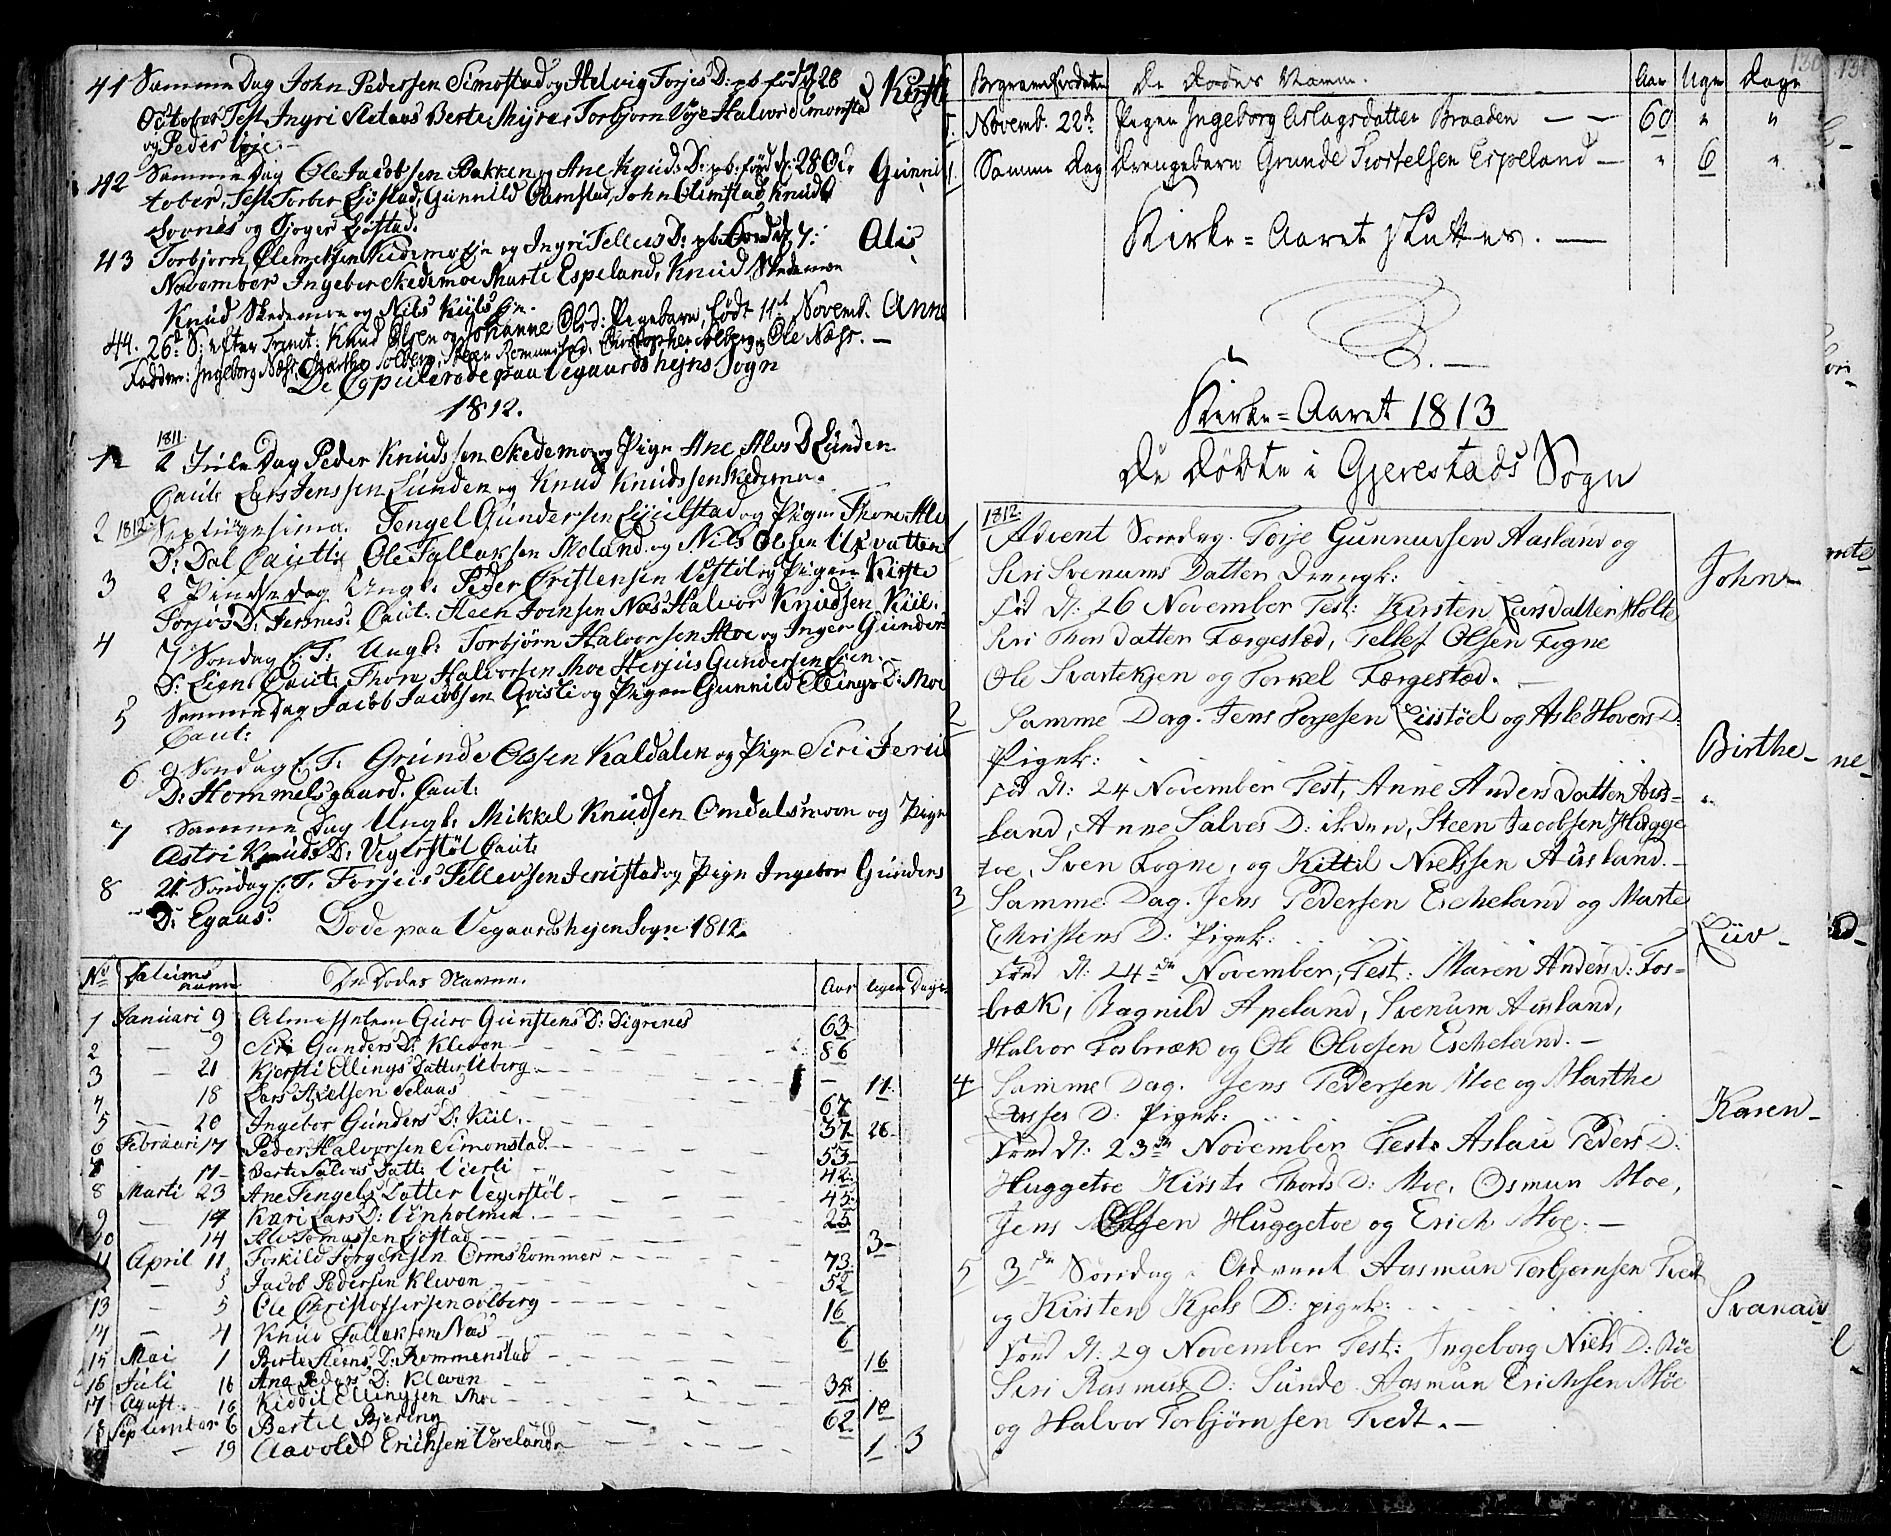 41 Samme Dag John Pedersen Simostad og Helvig Torjes D: pb. født d 28 Kirsti
October Test Ingri Selaas Berte Myrer Torbjørn Voje Halvor Simonstad
og Peder Voje.
42 Samme Dag Ole Jacobsen Bakken og Ane Knuds D: pb: född d: 28 Oc Gunnil
tober. Test Torber Löstad, Gunnild Olimstad, John Olimstad, Knud
Lovnes og Tjøger Løstad.
43 Torbjørn Clemetsen Skedemoen og Ingri Tellefs D: pb. född d. 7: Alis
November Ingebor Skedemoe Marti Espeland, Knud Skedemoe
Knud Skedemoe og Nils Kiilsen.
44. 26d S: efter Trinit: Knud Olsen og Johanne Olsd: Pigebarn, født 11t Novemb. Anne
Fadder: Ingeborg Næss, Marthe Solberg, Steen Romundstad, Christopher Solberg, Ole Næss.
De Copulerede paa Vegaardshejns Sogn
1812.
1811.
1 2 Jule Dag Peder Knudssen Skedemo og Pige Ane Alvs D Lunden
Caut: Lars Jenssen Lunden og Knud Knudssen Skedemo.
2 1812 Septugesima. Tengel Gundersen Ljulstad og Pigen Thone Alv
D: Dal Caut: Ole Tallaksen Moland og Nils Olsen Ufsvatten
3 2 Pindsedag Ungk: Peder Cristensen Vestöl og Pigen Kirste
Torjus D: Fennes: Caut: Steen Joensen Næs Halvor Knudsen Kiil.
4 7 Søndag E: T: Ungk: Torbjørn Halvorsen Moe og Inger Gunder
D: Lien Caut: Thor Halvorsen Moe Herjus Gundersen Lien.
5 Samme Dag Jacob Jacobsen Qvisli og Pigen Gunnild Ellings D: Moe
Caut:
6 9 Søndag E: T: Grunde Olssen Kaldalen og Pige Siri Jerul
D: Hommelsgaard. Caut:
7 Samme Dag Ungk: Mikkel Knudsen Omdalsmoen og Pige
Astri Knuds D: Vegerstöl Caut:
8 21 Søndag E: T: Torjus Tellevsen Jerustad og Pige Ingebor Gunders
D: Egaas. Dode paa Vegaardshejen Sogn 1812.
No Datums navne De Dodes Navne. Aar Uger Dage
1 Januari 9 Almesselem Guro Gunstens D: Digrenes 63
2 — 9 Siri Gunders D: Kleven 86
3 — 21 Kjersti Ellings Datter Uberg — 11
4 18 Lars Axelsen Selaas 67
5 — 20 Ingebor Gunders D: Kiil. 37 26
6 Februari 17 Peder Halvorsen Simonstad 53
7 11 Berte Salves Datt: Lierli 42
8 Marti 23 Ane Tengels Datter Vegerstöl 45
9 — 14 Kari Lars D: Vinholmen 25
10 14 Alv Tomassen Løstad 3
11 April 11 Torkild Jörgensen Ormshommer 73
12 — 5 Jacob Pedersen Kleven 52
13 — 5 Ole Christoffersen Solberg 16
14 — 4 Knud Tallaksen Næs 6
15 Mai 1 Berte Steens D: Rommenstad 16
16 Juli 16 Ane Peders D: Kleven 34
17 Agust 16 Kiddil Ellingsen Moe 10
18 September 6 Bertel Bjering 62
— 19 Aavold Erichsen Vereland 1 3
Begravelsesdaten De Dødes Navne. Aar Uger Dage
Novemb. 22de Pigen Ingeborg Aslagsdatter Braaden — — 60 " "
Samme Dag Drengebarn Grunde Tostelsen Espeland — " 6 "
Kirke-Aaret sluttes. —
Kirke-Aaret 1813
De Döbte i Gjerestads Sogn
1812.
1 Advent Søndag. Torje Gunnufsen Aasland og
Siri Svenums Datter Drengk: John
Föd d: 26 November Test: Kirsten Larsdatter Holte
Siri Thordatter Færgested, Tellef Olsen Fogne
Ole Svartekjen og Torkel Færgestød. —
2 Samme Dag. Jens Torjesen Lisstöel og Asle Hovers D:
Pigek: Birthe
Föd d: 24 November Test, Anne Anders Datter Aus-
land, Anne Salves D: ibden, Steen Jacobsen Hugge
toe, Sven Fogne, og Kittil Nielssen Ausland.
3 Samme Dag. Jens Pedersen Escheland og Marte
Christens D: Pigek: Liiv
Født d: 24de November, Test: Maren Anders D: Fos-
bræk, Ragnild Apeland, Svenum Ausland,
Halvor Fosbræk og Ole Olvesen Escheland. —
4 Samme Dag. Jens Pedersen Moe og Marthe
Asses D: Pigek: Karen
Født d: 23de November Test: Aslau Peders D:
Huggetoe Kirste Thords D: Moe, Osmun Moe,
Jens Olsen Huggetoe og Erich Moe. —
5 3de Söndag i Advent Aasmun Torbjørnsen Tvedt
og Kirsten Kjels D: pigek: Svanau
Född d: 29 November Test: Ingeborg Niels D: Röe
Siri Rasmus D: Sunde Aasmun Erichsen Möe
og Halvor Torbjørnsen Tvedt. —